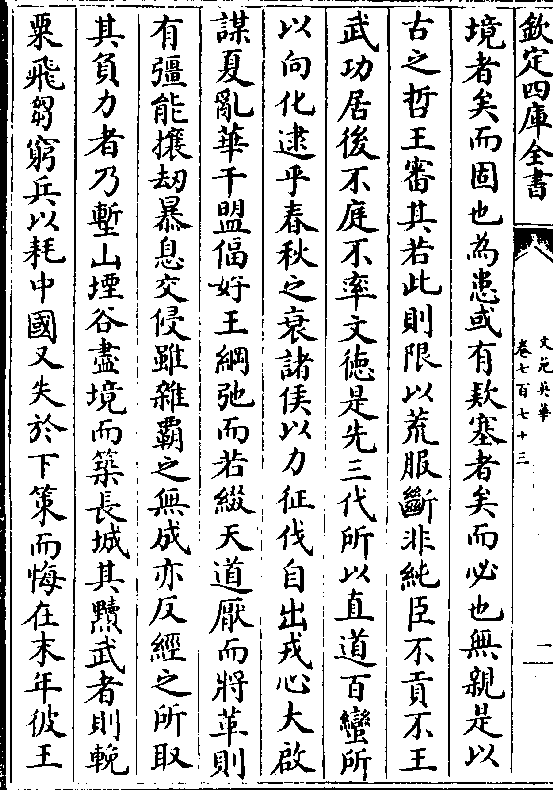 欽定四庫全書
文苑英華
卷七百七十三
二
境者矣而固也為患或有欵塞者矣而必也無親是以
古之哲王審其若此則限以荒服斷非純臣不貢不王
武功居後不庭不率文徳是先三代所以直道百蠻所
以向化逮乎春秋之衰諸侯以力征伐自出戎心大啟
謀夏亂華干盟偪好王綱弛而若綴天道厭而將革則
有彊能攘刼暴息交侵雖雜霸之無成亦反經之所取
其負力者乃塹山堙谷盡境而築長城其黷武者則輓
粟飛芻窮兵以耗中國又失於下策而悔在末年彼王